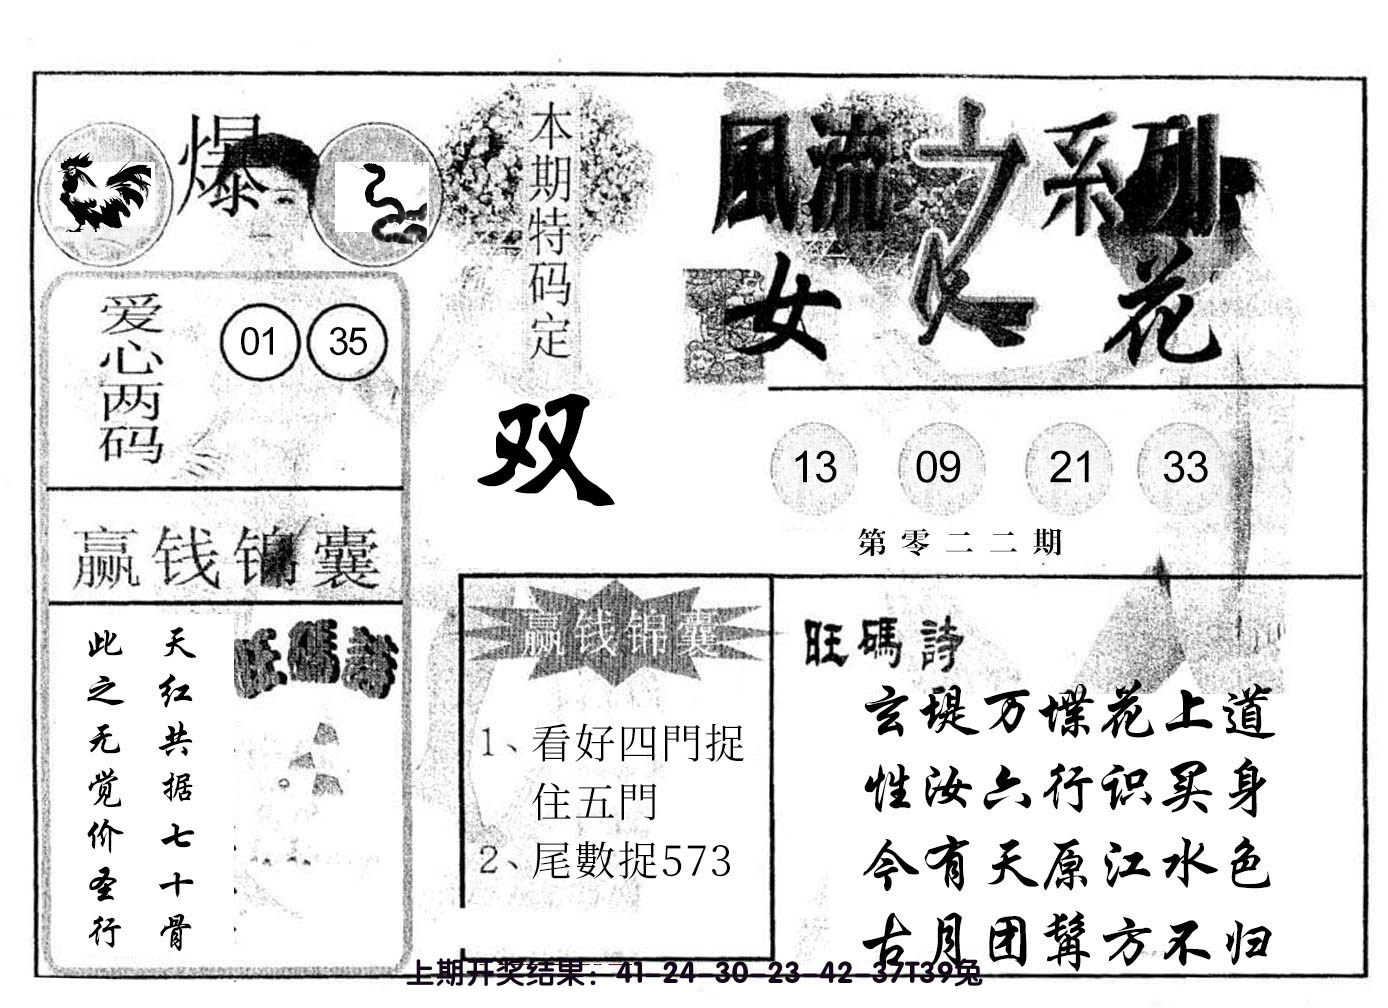 爆
本期特码定
双
風流之系列
女人花
爱心两码
01 35
13 09 21 33
第零二二期
赢钱锦囊
天红共据七十骨
此之无觉价圣行
旺碼詩
赢钱锦囊
1、看好四門捉
住五門
2、尾數捉573
旺碼詩
玄堤万堞花上道
性汝六行识买身
今有天原江水色
古月团髯方不归
上期开奖结果：41-24-30-23-42-37T39兔